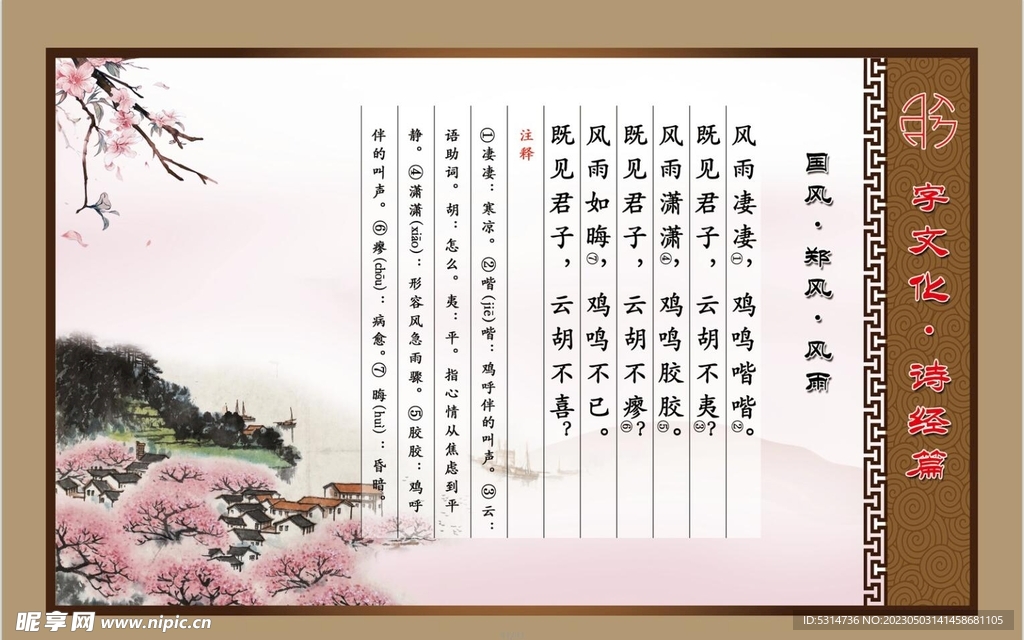 字文化·诗经篇
国风·郑风·风雨
风雨凄凄①，鸡鸣喈喈②。
既见君子，云胡不夷③？
风雨潇潇④，鸡鸣胶胶⑤。
既见君子，云胡不瘳⑥？
风雨如晦⑦，鸡鸣不已。
既见君子，云胡不喜？
注释
①凄凄：寒凉。②喈(jiē)喈：鸡呼伴的叫声。③云：
语助词。胡：怎么。夷：平。指心情从焦虑到平
静。④潇潇(xiāo)：形容风急雨骤。⑤胶胶：鸡呼
伴的叫声。⑥瘳(chōu)：病愈。⑦晦(huì)：昏暗。
昵享网 www.nipic.cn
ID:5314736 NO:20230503141458681105